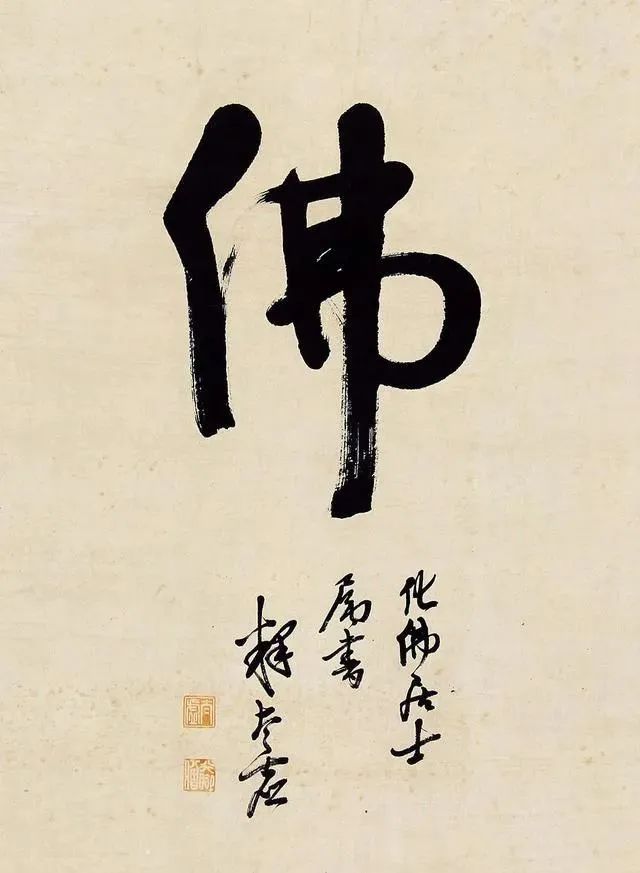 佛
化佛居士
属书
释太虚